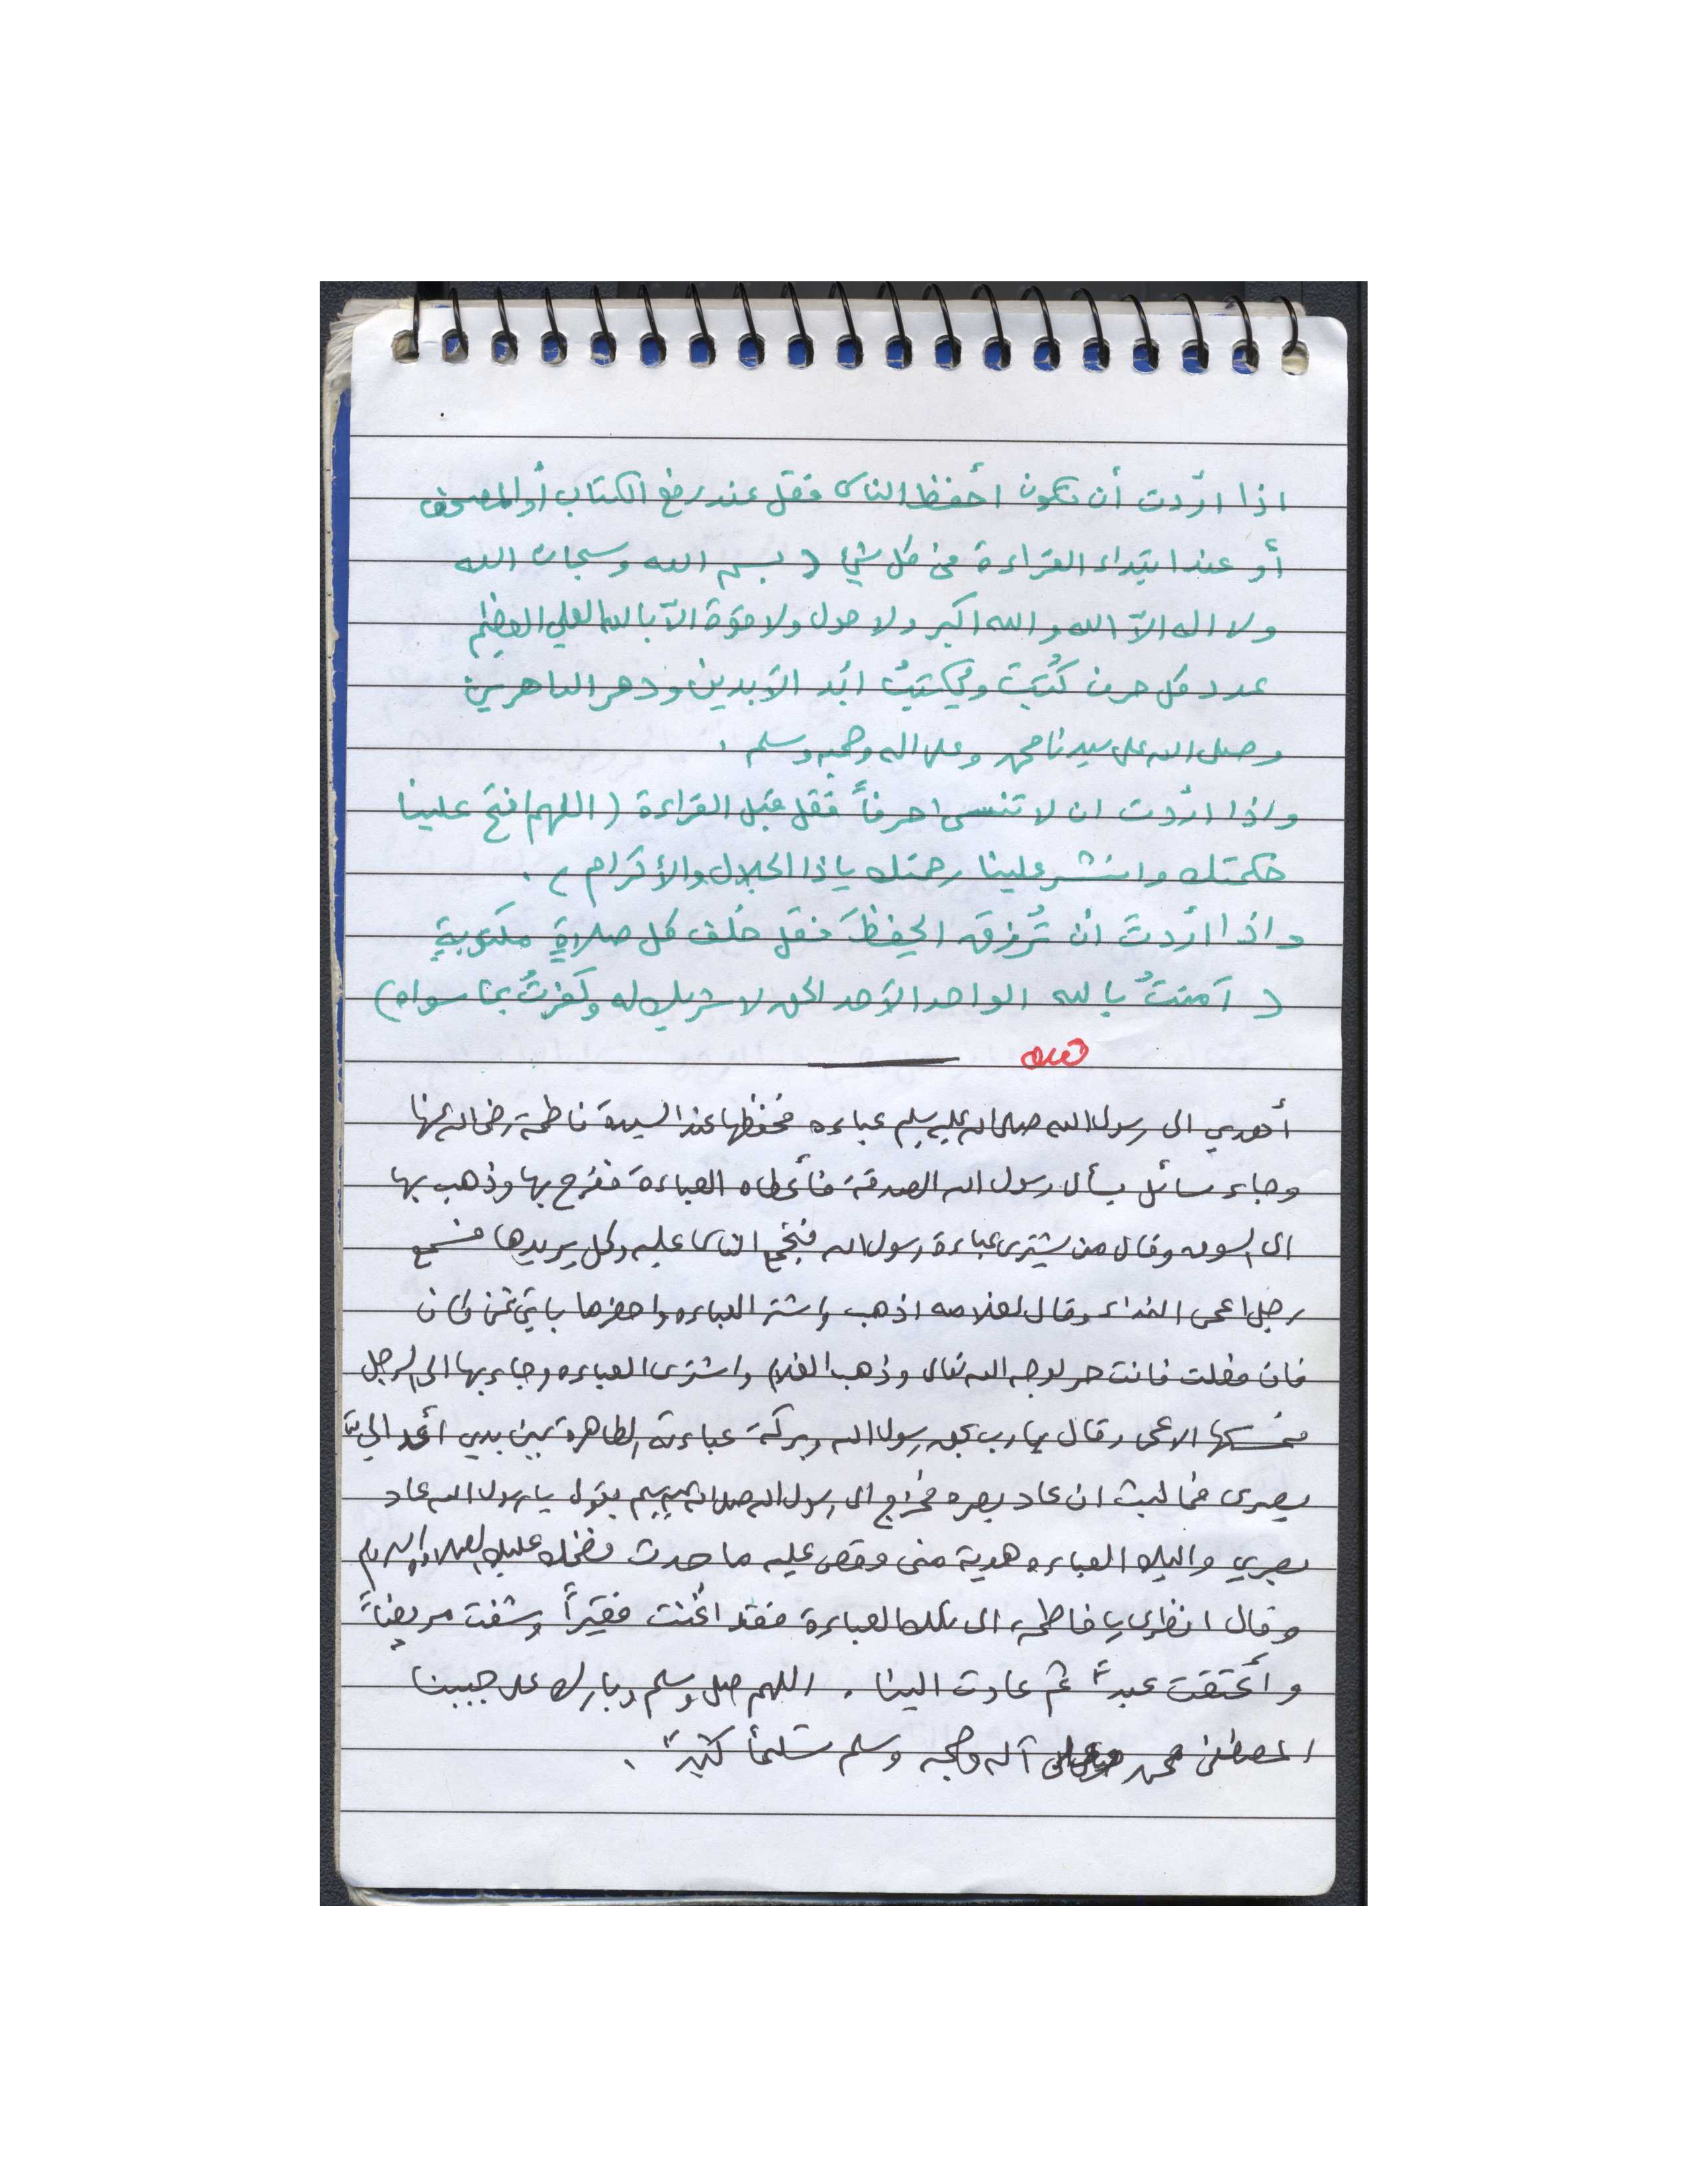 اذا اردت أن تكون أحفظ الناس فقل عند رفع الكتاب أو المصحف
أو عند ابتداء القراءة من كل شيء ( بسم الله وسبحان الله
ولا اله الاّ الله والله اكبر ولا حول ولا قوة الاّ بالله العلي العظيم
عدد كل حرف كُتبَت ويكتبُ ابد الآبدين ودهر الداهرين
وصلى الله على سيدنا محمد وعلى اله وصحبه وسلم .
واذا اردت ان لا تنسى احرفاً فقل قبل القراءة ( اللهم افتح علينا
حكمتك وانشر علينا رحمتك ياذا الجلال والأكرام ) .
واذا اردت أن تُرزق الحفظَ فقل خلف كل صلاةٍ مكتوبةٍ
( آمنتُ بالله الواحد الآحد الحق لا شريك له وكفرتُ بما سواه )
قصه
أهدي الى رسول الله صلى الله عليه وسلم عباءه فحفظها عند السيدة فاطمة رضي الله عنها
وجاء سائل يسأل رسول الله الصدقة فأعطاه العباءة ففرح بها وذهب بها
الى السوق وقال من يشتري عباءة رسول الله فتجمع الناس عليه وكل يريدها فسمع
رجل اعمى النداء وقال لغلامه اذهب واشتر العباءه واحضرها بأي ثمن كان
فان فعلت فانت حر لوجه الله تعالى وذهب الغلام واشترى العباءه وجاء بها الى الرجل
فمسكها الاعمى وقال يارب بحق رسول الله وبركة عباءته الطاهرة بين يدي أعد الي
بصري فما لبث ان عاد بصره فخرج الى رسول الله صلى الله عليه وسلم يقول يارسول الله عاد
بصري واليك العباءه هدية مني وقص عليه ما حدث فضحك عليه الصلاة والسلام
وقال انظري يا فاطمة الى تلك العباءة فقد اغنت فقيراً وشفت مريضاً
وأعتقت عبداً ثم عادت الينا . اللهم صل وسلم وبارك على حبيبنا
المصطفى محمد وعلى آله وصحبه وسلم تسليماً كثيراً .